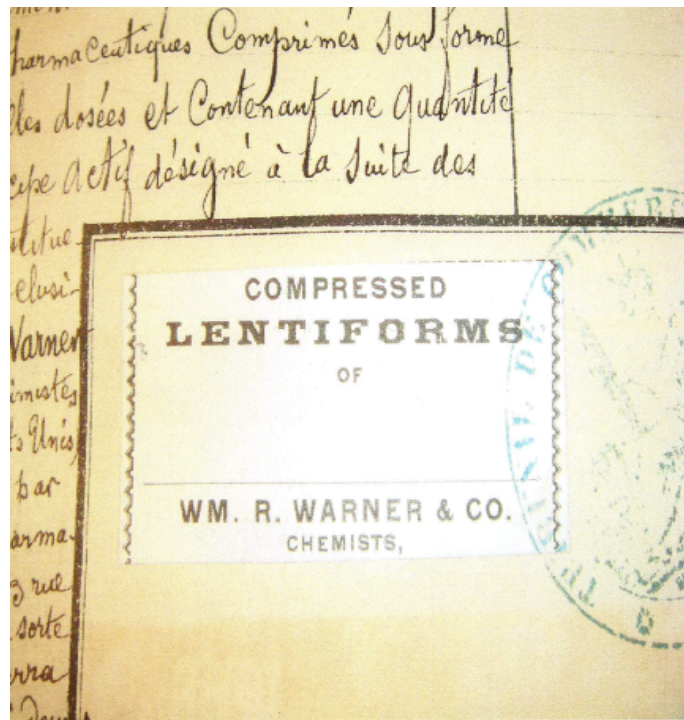 harmaceutiques Comprimés Sous forme
les dosées et Contenant une quantité
cipe actif désigné à la Suite des
stitue
clusi-
Warner
imistes
ts Unis
par
arma-
3 rue
sorte
erra
COMPRESSED
LENTIFORMS
OF
WM. R. WARNER & CO.
CHEMISTS,
TRIBUNAL DE COMMERCE